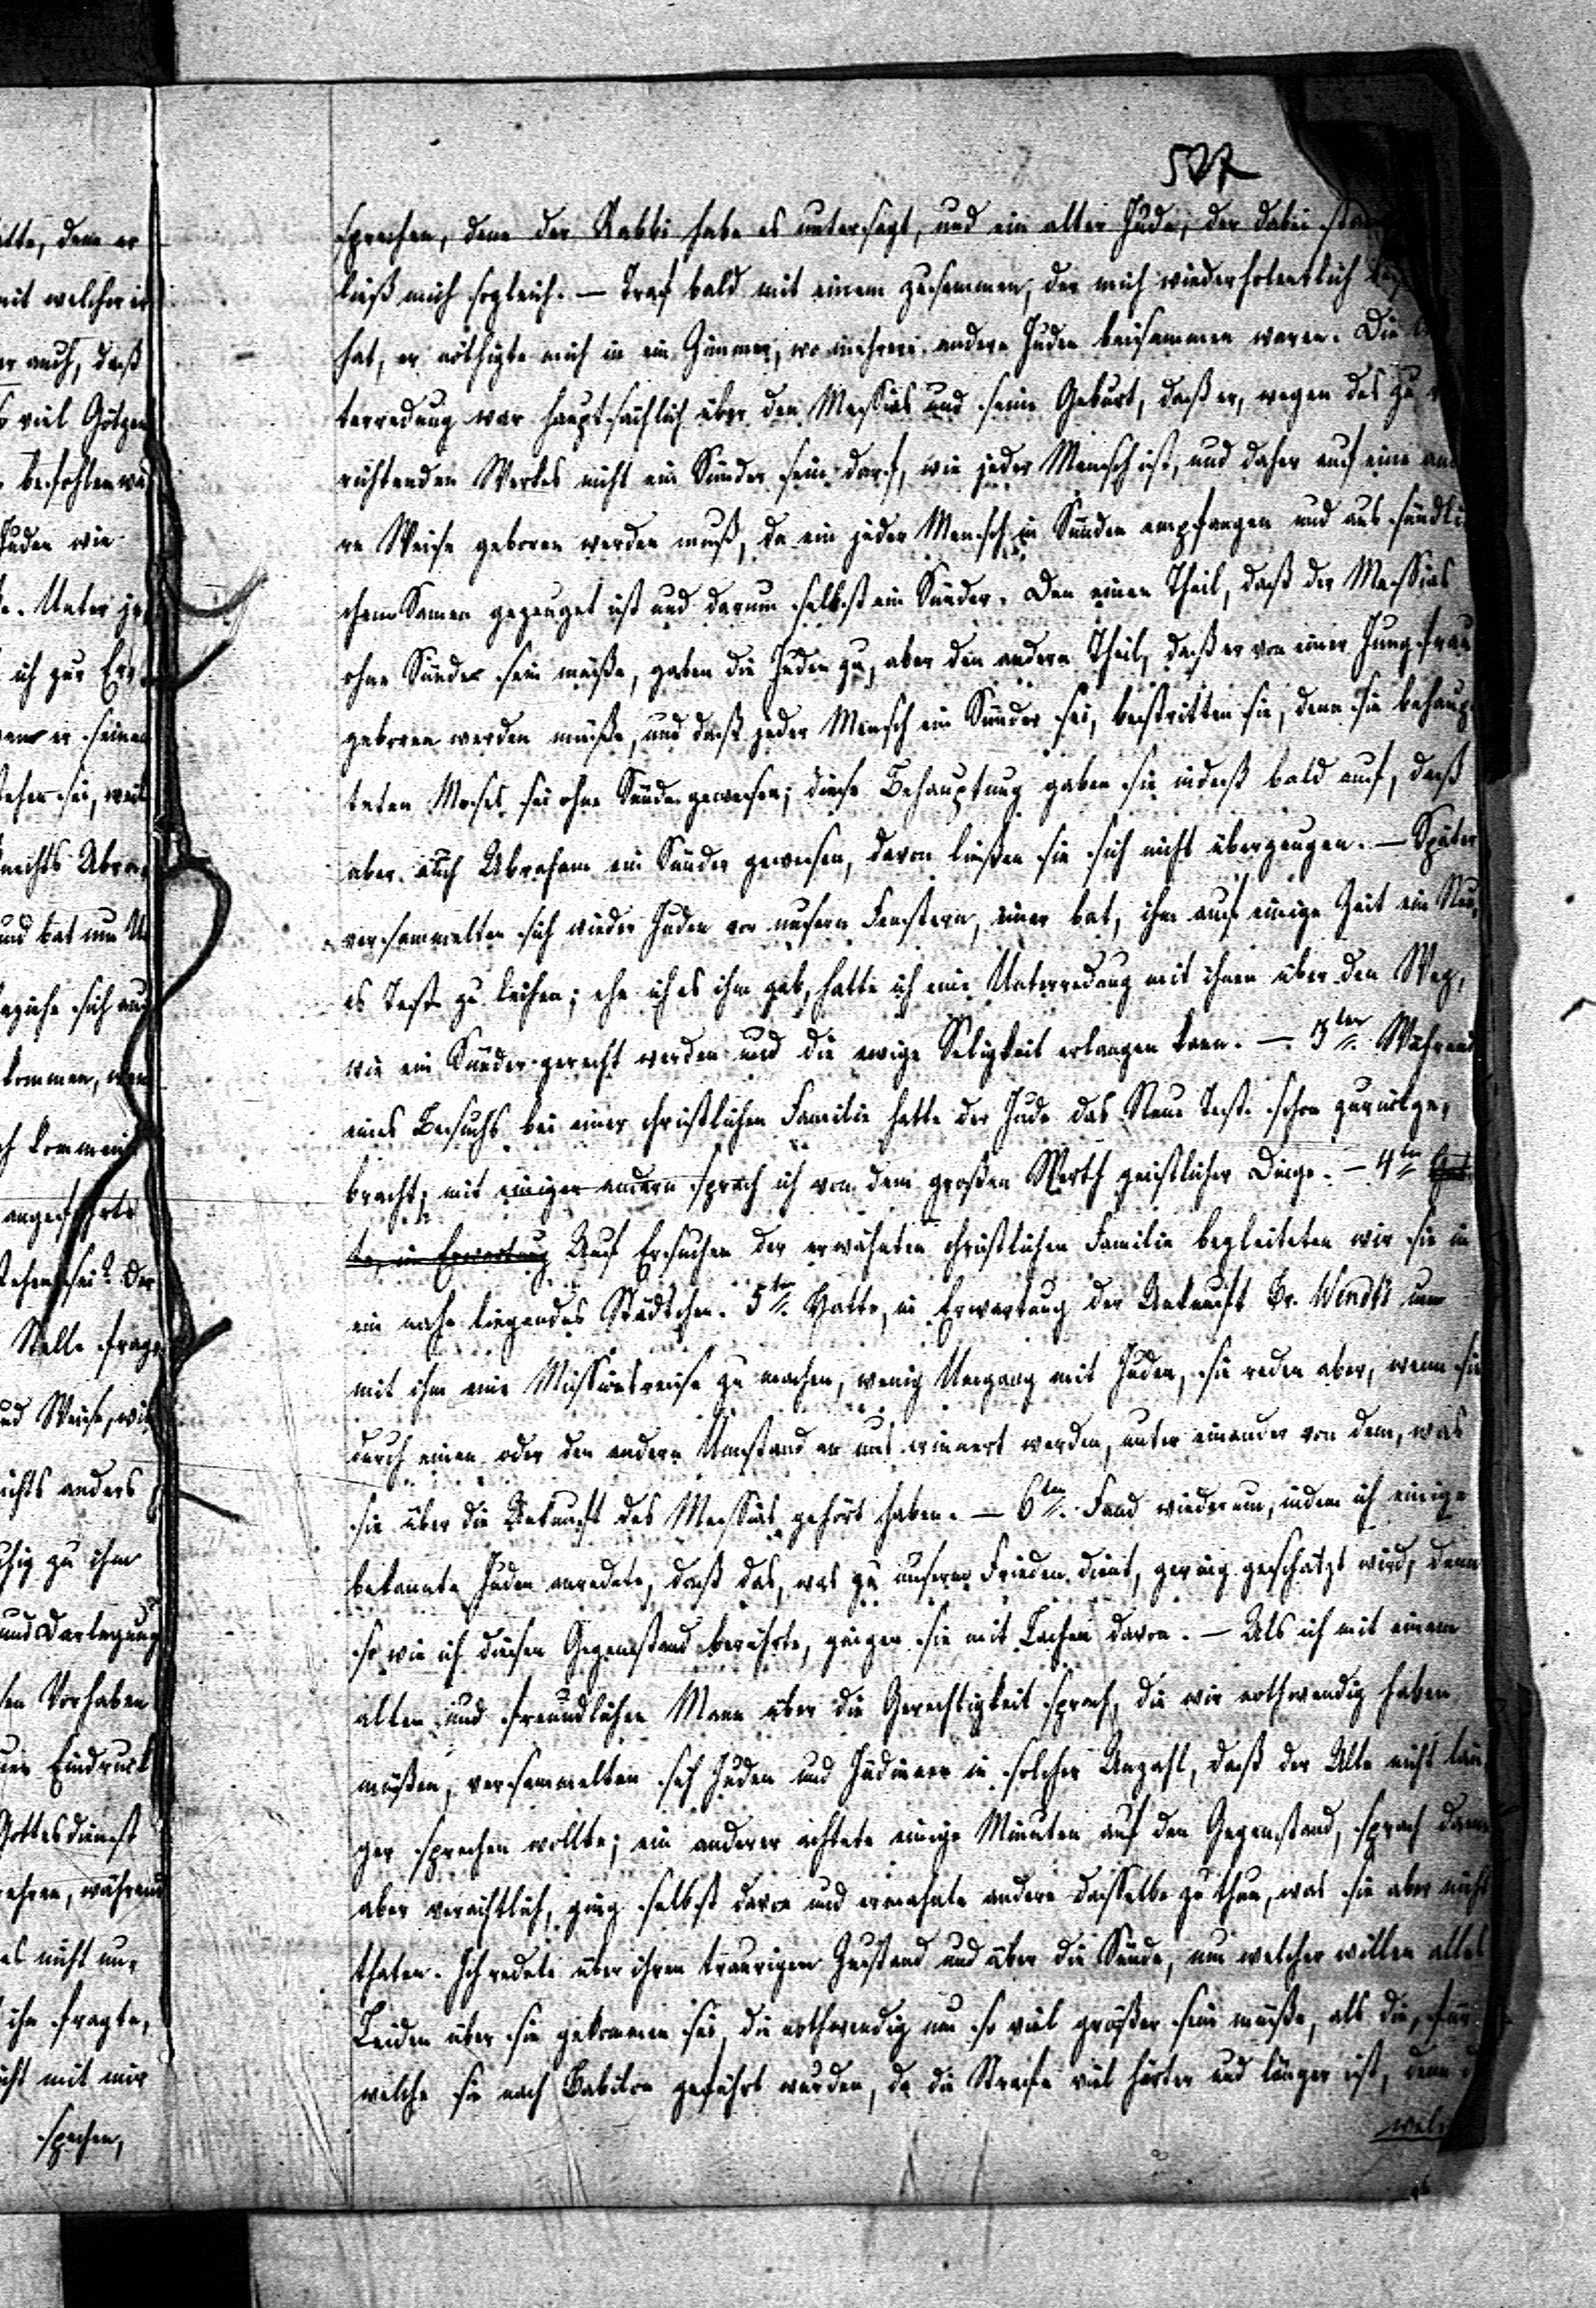 527
sprechen, denn der Rabbi habe es untersagt, und ein alter Jude, der dabei
ließ mich sogleich. — Traf bald mit einem zusammen, der mich wiederholentlich
hat, er nöthigte mich in ein Zimmer, wo mehrere andere Juden beisammen waren. Die
terredung war hauptsächlich über den Messias und seine Geburt, daß er, wegen des zu
richtenden Werkes nicht ein Sünder sein darf, wie jeder Mensch ist, und daher auf eine
re Weise geboren werden muß, da ein jeder Mensch in Sünden empfangen und aus sündli
chem Samen gezeuget ist und darum selbst ein Sünder. Den einen Theil, daß der Messias
ohne Sünde sein müße, gaben die Juden zu, aber den andern Theil, daß er von einer Jungfrau
geboren werden müße, und daß jeder Mensch ein Sünder sei, bestritten sie, denn sie behaup
teten Moses sei ohne Sünde gewesen; diese Behauptung gaben sie indeß bald auf, daß
aber auch Abraham ein Sünder gewesen, davon ließen sie sich nicht überzeugen. — Später
versammelten sich wieder Juden vor unsern Fenstern, einer bat, ihm auf einige Zeit ein Neu,
es Test. zu leihen; ehe ich es ihm gab, hatte ich eine Unterredung mit ihnen über den Weg,
wie ein Sünder gerecht werden und die ewige Seligkeit erlangen kann. — 3ten Während
eines Besuchs bei einer christlichen Familie hatte der Jude das Neue Test. schon zurückge,
bracht; mit einigen andern sprach ich von dem großen Werth geistlicher Dinge. — 4ten
te, in Erwartung Auf Ersuchen der erwähnten christlichen Familie begleiteten wir sie in
ein nahe liegendes Städtchen. 5ten Hatte, in Erwartung der Ankunft Br. Wendts um
mit ihm eine Missionsreise zu machen, wenig Umgang mit Juden, sie reden aber, wenn sie
durch einen oder den andern Umstand an uns erinnert werden, unter einander von dem, was
sie über die Ankunft des Messias gehört haben. — 6ten Fand wiederum, indem ich einige
bekannte Juden anredete, daß das, was zu unserm Frieden dient, gering geschätzt wird, denn
so wie ich diesen Gegenstand berührte, gingen sie mit Lachen davon. — Als ich mit einem
alten und freundlichen Mann über die Gerechtigkeit sprach, die wir nothwendig haben
müßen, versammelten sich Juden und Jüdinnen in solcher Anzahl, daß der Alte nicht län,
ger sprechen wollte; ein anderer achtete einige Minuten auf den Gegenstand, sprach dann
aber verächtlich, ging selbst davon und ermahnte andere dasselbe zu thun, was sie aber nicht
thaten. Ich redete über ihren traurigen Zustand und über die Sünde, um welcher willen alles
Leiden über sie gekommen sei, die nothwendig um so viel größer sein müße, als die, für
welche sie nach Babilon geführt wurden, da die Strafe viel härter und länger ist, denn
dem er
mit welcher
er auch, daß
viel Götzen
befohlen
Juden wie
Unter
ich zur
er seinen
sei, weil
Abra,
und bat um
sich
kommen,
kommen
angeführte
sei? Der
Stelle frage
und Weise, wie
nichts anders
zu ihm
und Darlegung
Vorhaben
Eindruck
Gottesdienst
während
es nicht un,
ihn fragte,
nicht mit mir
sprechen,